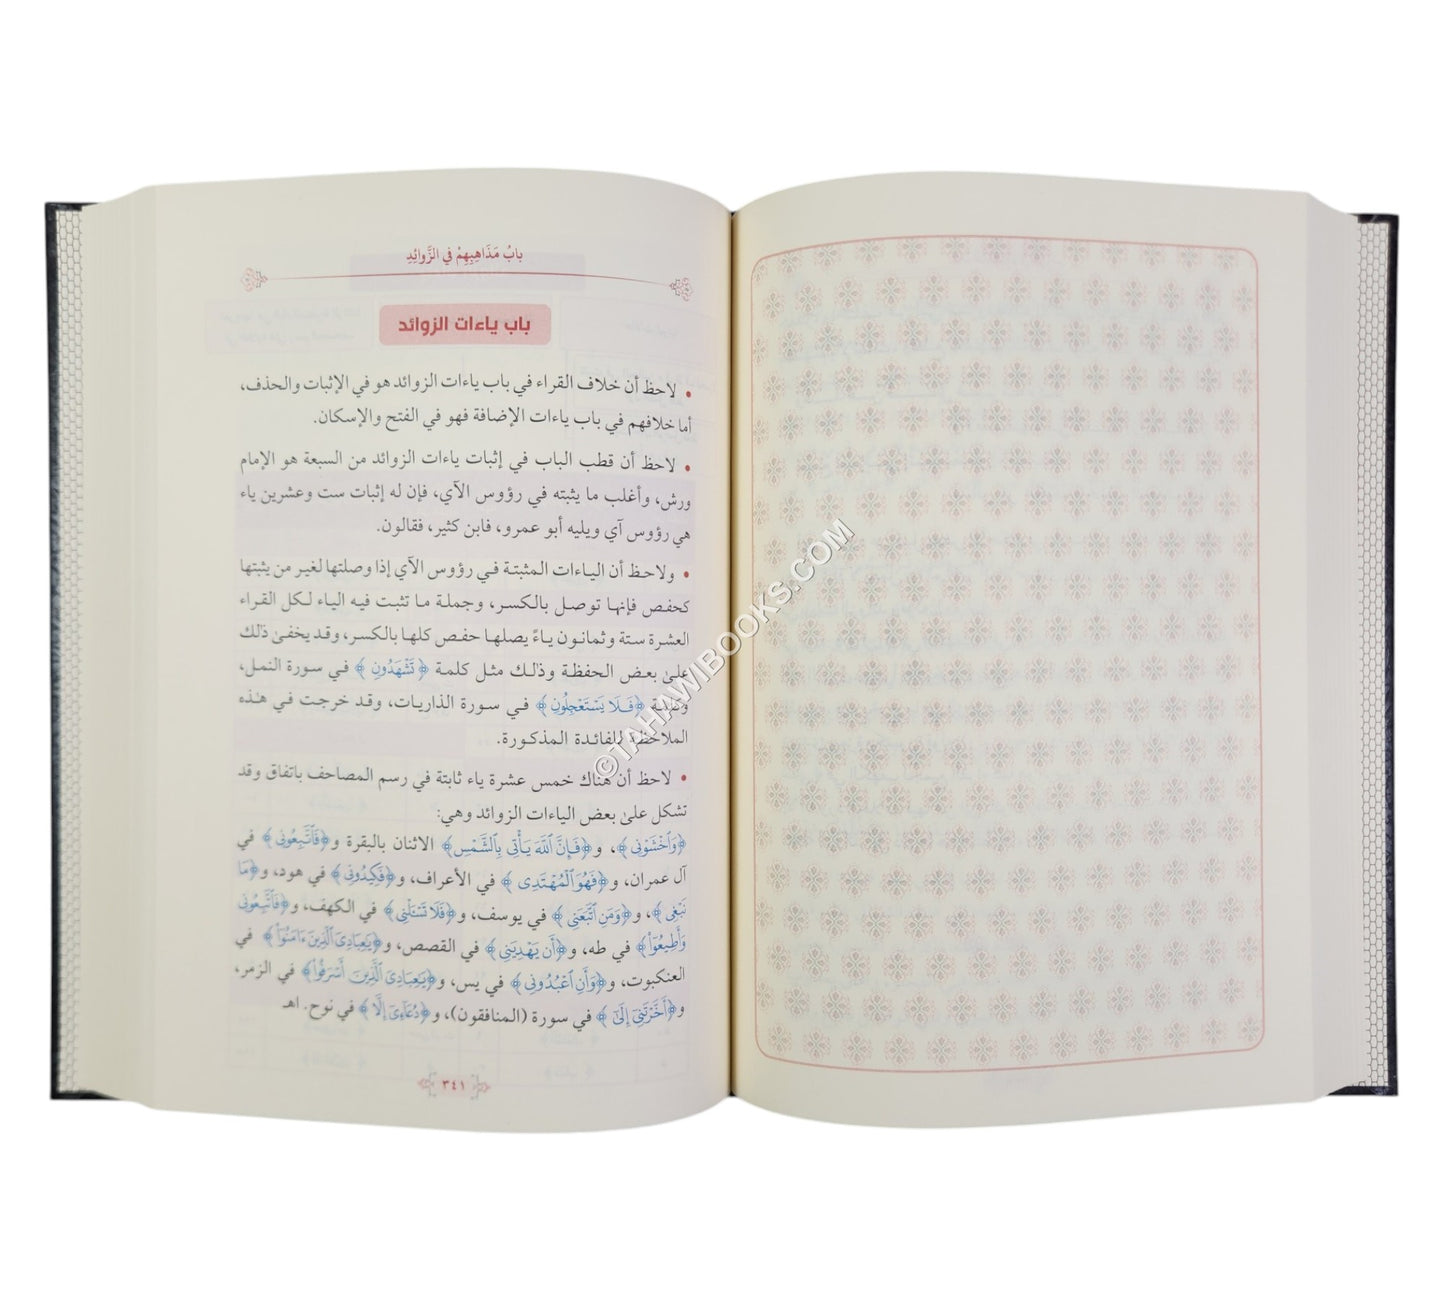 بابُ مَذَاهِبِهِمْ في الزَّوائِدِ
باب ياءات الزوائد
• لاحظ أن خلاف القراء في باب ياءات الزوائد هو في الإثبات والحذف،
أما خلافهم في باب ياءات الإضافة فهو في الفتح والإسكان.
• لاحظ أن قطب الباب في إثبات ياءات الزوائد من السبعة هو الإمام
ورش، وأغلب ما يثبته في رؤوس الآي، فإن له إثبات ست وعشرين ياء
هي رؤوس آي ويليه أبو عمرو، فابن كثير، فقالون.
• ولاحظ أن الياءات المثبتة في رؤوس الآي إذا وصلتها لغير من يثبتها
كحفص فإنها توصل بالكسر، وجملة ما تثبت فيه الياء لكل القراء
العشرة ستة وثمانون ياءً يصلها حفص كلها بالكسر، وقد يخفىٰ ذلك
علىٰ بعض الحفظة وذلك مثل كلمة ﴿تَشْهَدُونِ﴾ في سورة النمل،
﴿فَلَا يَسْتَعْجِلُونِ﴾ في سورة الذاريات، وقد خرجت في هذه
الملاحظة للفائدة المذكورة.
• لاحظ أن هناك خمس عشرة ياء ثابتة في رسم المصاحف باتفاق وقد
تشكل علىٰ بعض الياءات الزوائد وهي:
﴿وَٱخْشَوْنِى﴾، و﴿فَإِنَّ ٱللَّهَ يَأْتِى بِٱلشَّمْسِ﴾ الاثنان بالبقرة و﴿فَٱتَّبِعُونِى﴾ في
آل عمران، و﴿فَهُوَ ٱلْمُهْتَدِى﴾ في الأعراف، و﴿فَكِيدُونِى﴾ في هود، و﴿مَا
نَبْغِى﴾، و﴿وَمَنِ ٱتَّبَعَنِى﴾ في يوسف، و﴿فَلَا تَسْـَٔلْنِى﴾ في الكهف، و﴿فَٱتَّبِعُونِى
وَأَطِيعُوٓا۟﴾ في طه، و﴿أَن يَهْدِيَنِى﴾ في القصص، و﴿يَٰعِبَادِىَ ٱلَّذِينَ ءَامَنُوٓا۟﴾ في
العنكبوت، و﴿وَأَنِ ٱعْبُدُونِى﴾ في يس، و﴿يَٰعِبَادِىَ ٱلَّذِينَ أَسْرَفُوا۟﴾ في الزمر،
و﴿أَخَّرْتَنِىٓ إِلَىٰٓ﴾ في سورة (المنافقون)، و﴿دُعَآءِىٓ إِلَّا﴾ في نوح. اهـ
٣٤١
©TAHAWIBOOKS.COM